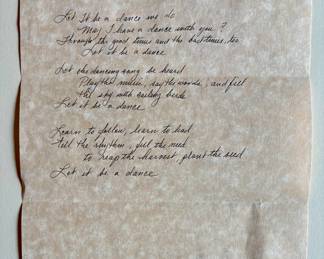 Let it be a dance we do
May I have a dance with you?
Through the good times and the bad times, too
Let it be a dance
Let the dancing song be heard
Play the music, say the words, and fill
the sky with sailing birds
Let it be a dance
Learn to follow, learn to lead
Feel the rhythm, fill the need
to reap the harvest, plant the seed
Let it be a dance